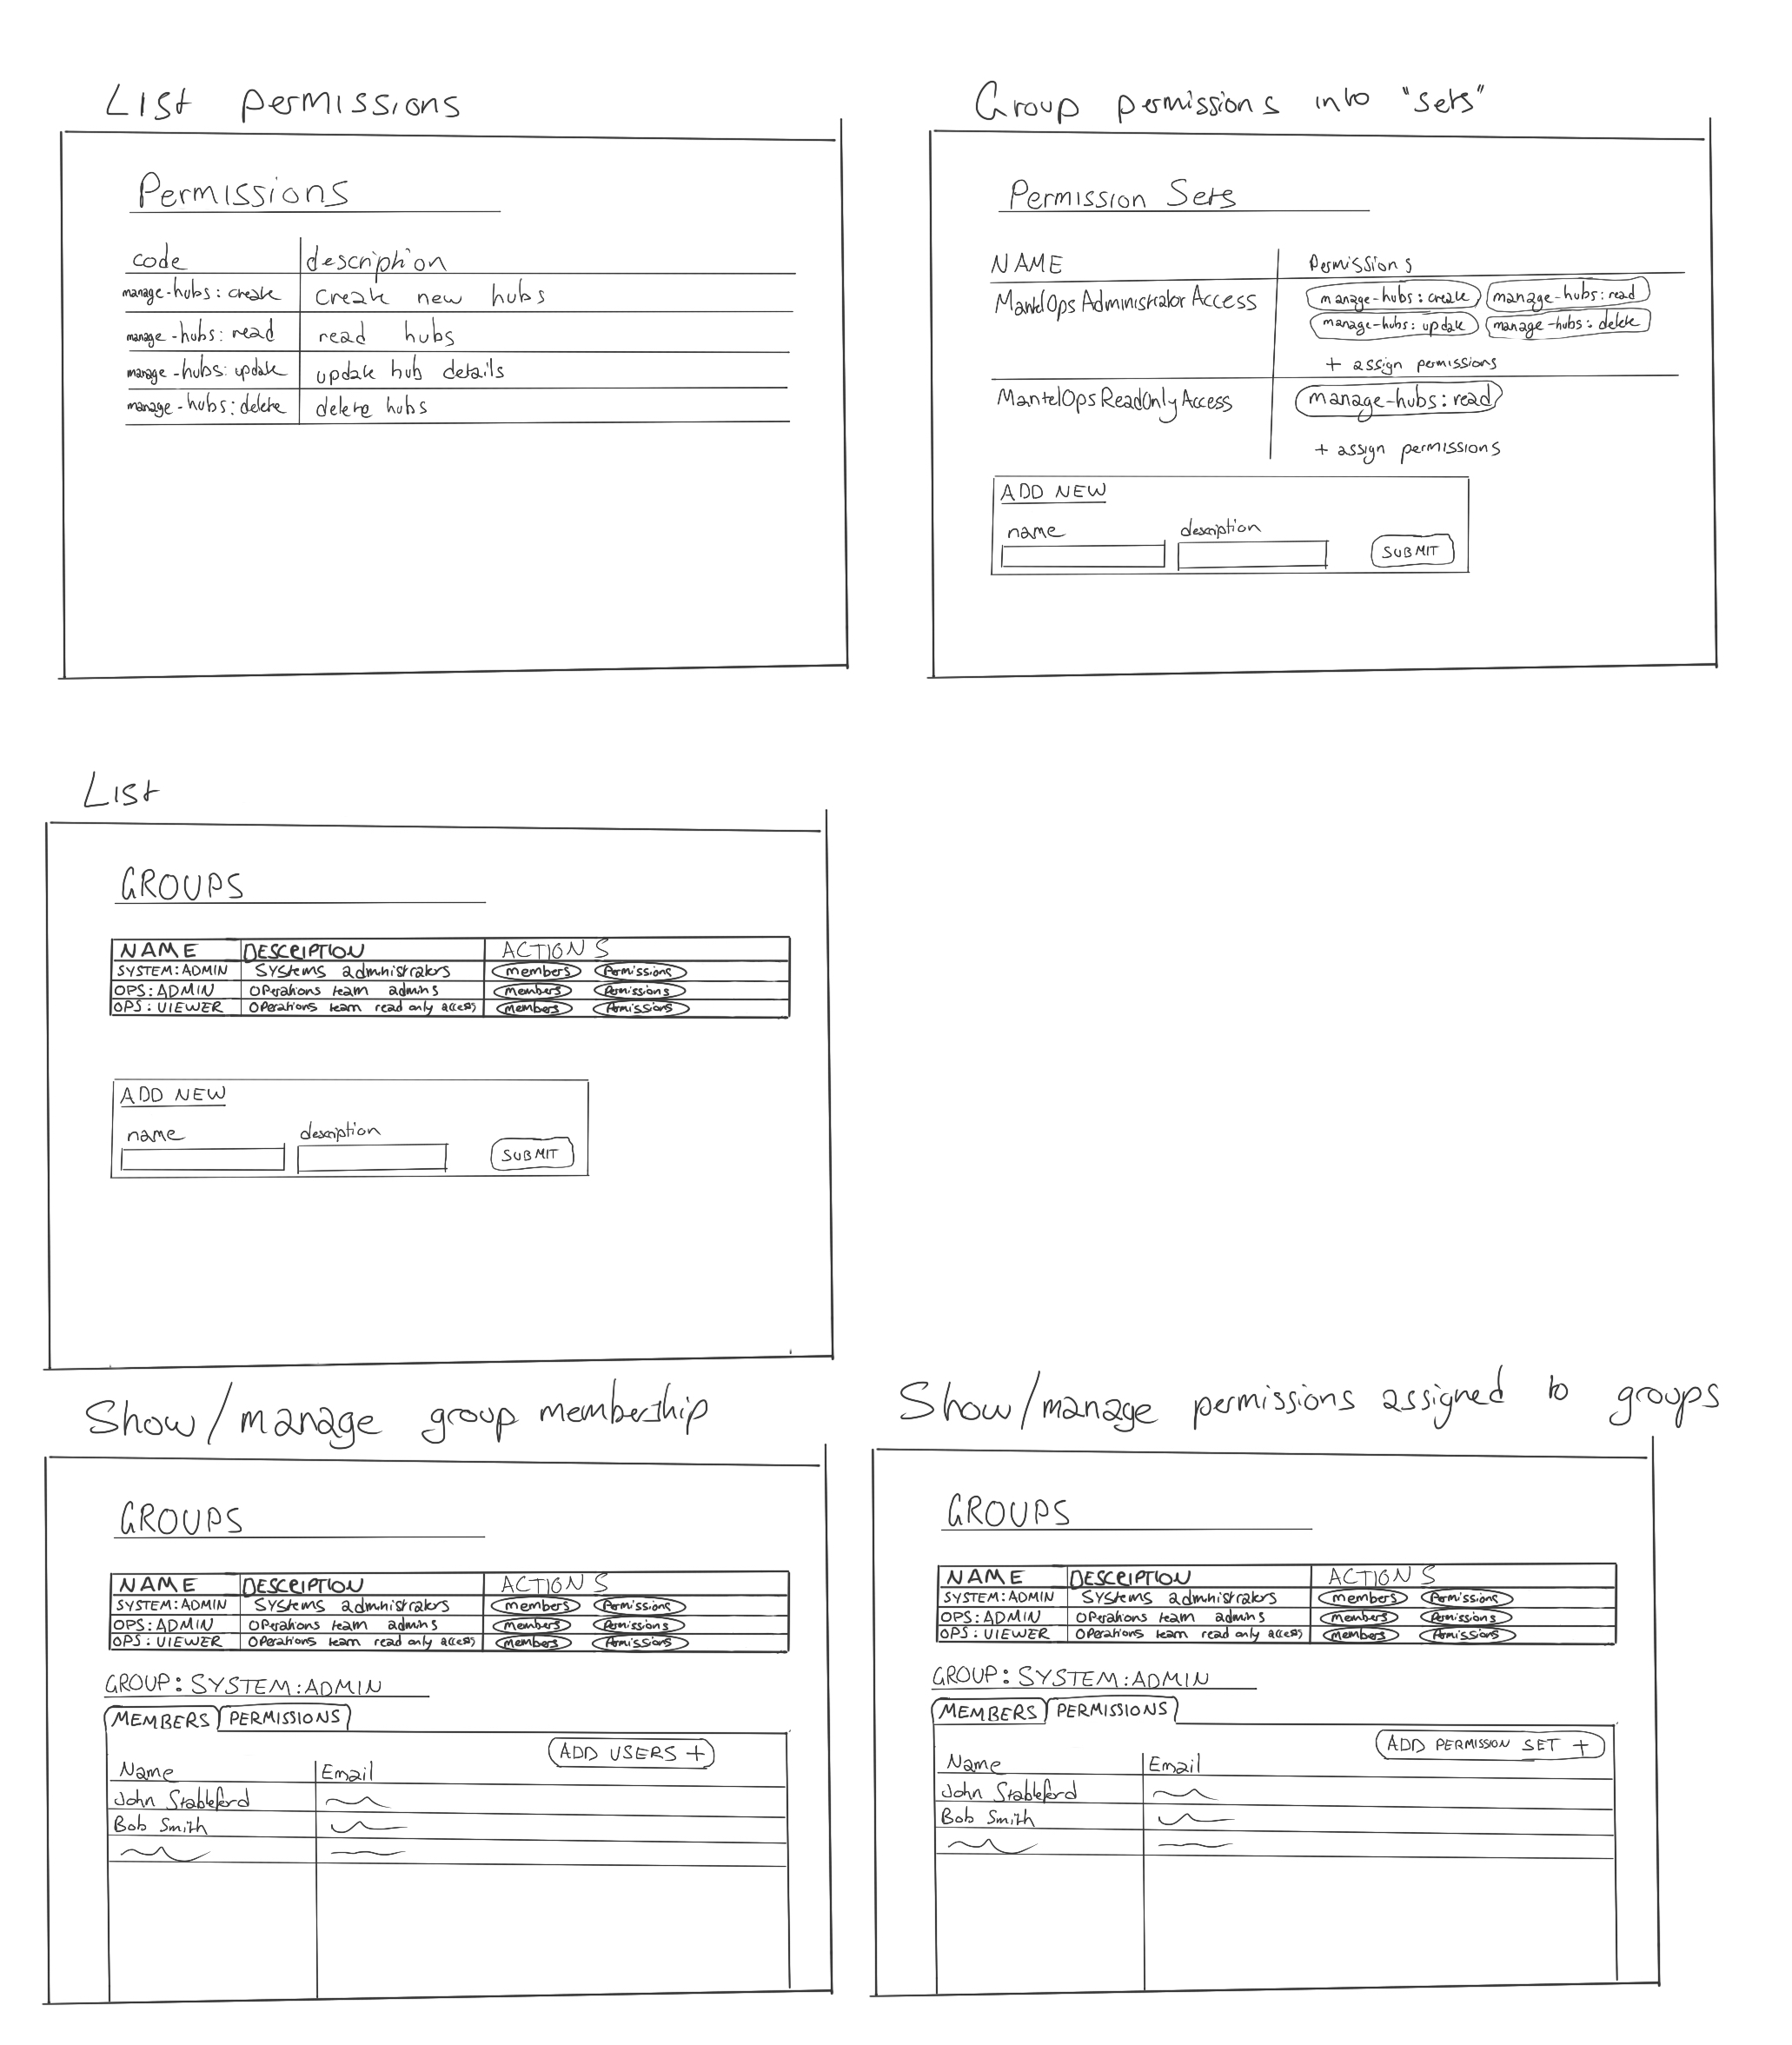 List permissions
Permissions
code description
manage-hubs: create create new hubs
manage-hubs: read read hubs
manage-hubs: update update hub details
manage-hubs: delete delete hubs
Group permissions into "sets"
Permission Sets
NAME Permissions
MantelOpsAdministratorAccess manage-hubs: create manage-hubs: read
manage-hubs: update manage-hubs: delete
+ assign permissions
MantelOpsReadOnlyAccess manage-hubs: read
+ assign permissions
ADD NEW
name description
SUBMIT
List
GROUPS
NAME DESCRIPTION ACTIONS
SYSTEM:ADMIN Systems administrators members Permissions
OPS:ADMIN Operations team admins members Permissions
OPS:VIEWER Operations team read only access members Permissions
ADD NEW
name description
SUBMIT
Show/manage group membership
GROUPS
NAME DESCRIPTION ACTIONS
SYSTEM:ADMIN Systems administrators members Permissions
OPS:ADMIN Operations team admins members Permissions
OPS:VIEWER Operations team read only access members Permissions
GROUP: SYSTEM:ADMIN
MEMBERS PERMISSIONS
ADD USERS +
Name Email
John Stableford
Bob Smith
Show/manage permissions assigned to groups
GROUPS
NAME DESCRIPTION ACTIONS
SYSTEM:ADMIN Systems administrators members Permissions
OPS:ADMIN Operations team admins members Permissions
OPS:VIEWER Operations team read only access members Permissions
GROUP: SYSTEM:ADMIN
MEMBERS PERMISSIONS
ADD PERMISSION SET +
Name Email
John Stableford
Bob Smith